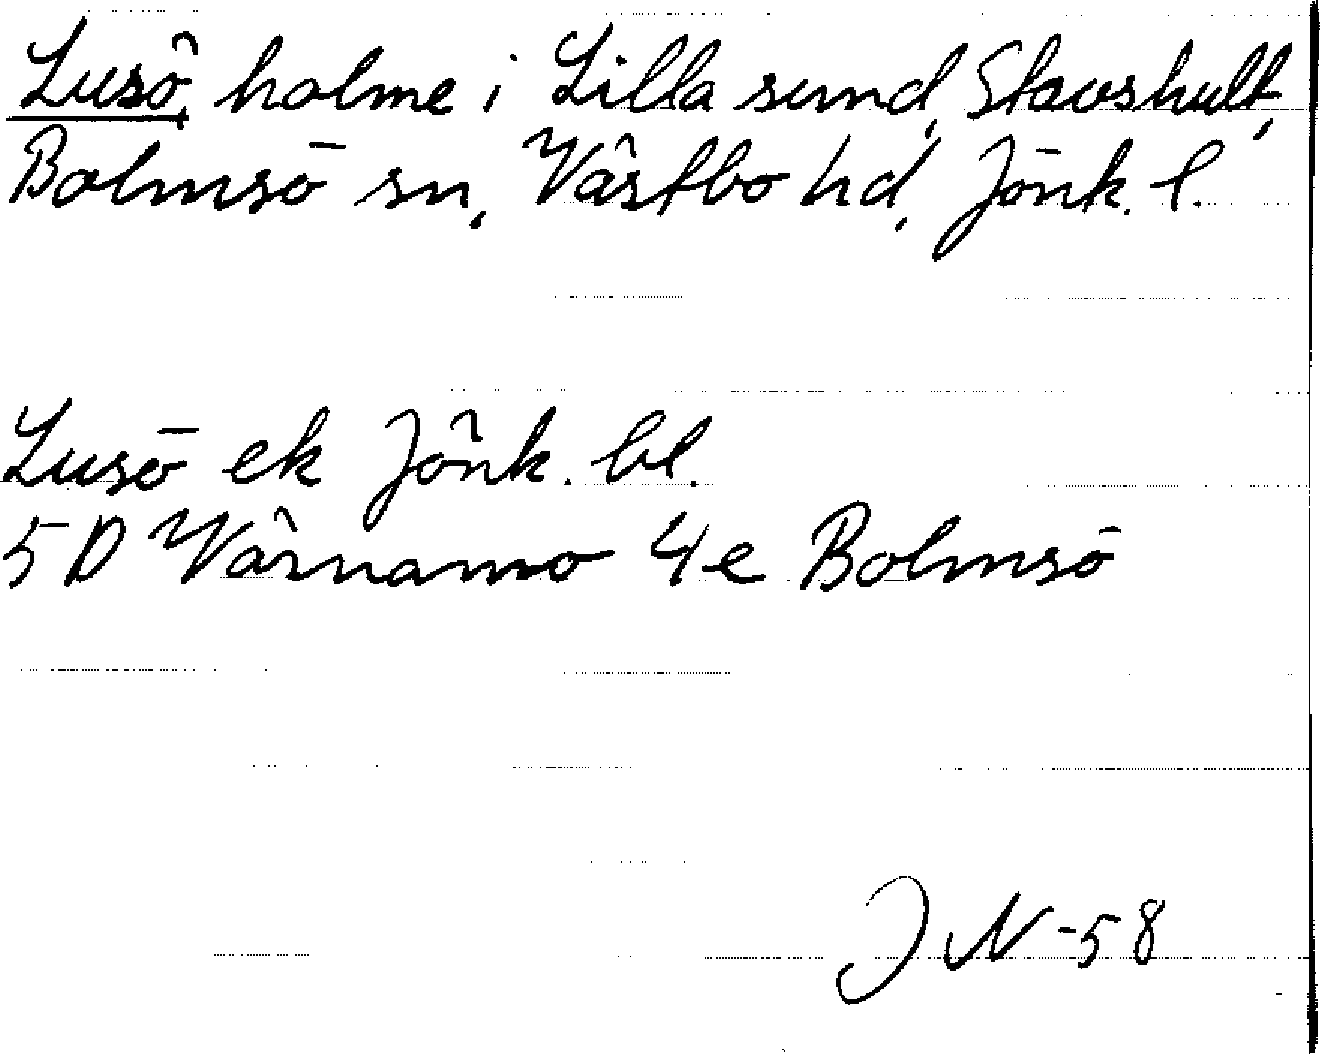 Lusö, holme i Lilla sund, Stavshult,
Bolmsö sn, Västbo hd, Jönk. l.
Lusö ek Jönk. bl.
5D Värnamo 4e Bolmsö
JN -58